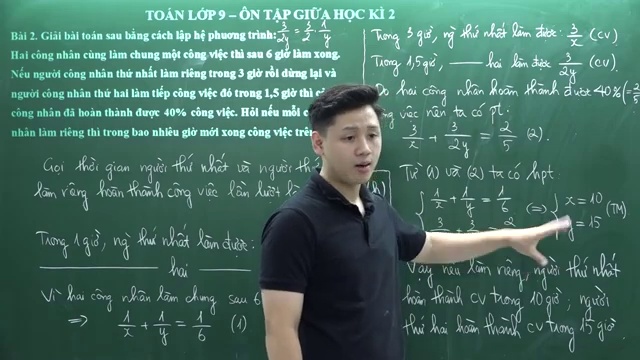 TOÁN LỚP 9 – ÔN TẬP GIỮA HỌC KÌ 2
Bài 2. Giải bài toán sau bằng cách lập hệ phương trình: 3/2y = 3/2 · 1/y
Hai công nhân cùng làm chung một công việc thì sau 6 giờ làm xong.
Nếu người công nhân thứ nhất làm riêng trong 3 giờ rồi dừng lại và
người công nhân thứ hai làm tiếp công việc đó trong 1,5 giờ thì cả
công nhân đã hoàn thành được 40% công việc. Hỏi nếu mỗi
nhân làm riêng thì trong bao nhiêu giờ mới xong công việc trên
Gọi thời gian người thứ nhất và người thứ
làm riêng hoàn thành công việc lần lượt là
Trong 1 giờ, ng thứ nhất làm được:
hai
Vì hai công nhân làm chung sau 6
=> 1/x + 1/y = 1/6 (1)
Trong 3 giờ, ng thứ nhất làm được: 3/x (CV)
Trong 1,5 giờ, hai làm được: 3/2y (CV).
Do hai công nhân hoàn thành được 40%
công việc nên ta có pt:
3/x + 3/2y = 2/5 (2).
Từ (1) và (2) ta có hpt:
1/x + 1/y = 1/6 (=) x = 10 (TM)
y = 15
Vậy nếu làm riêng, người thứ nhất
hoàn thành cv trong 10 giờ; người
thứ hai hoàn thành cv trong 15 giờ